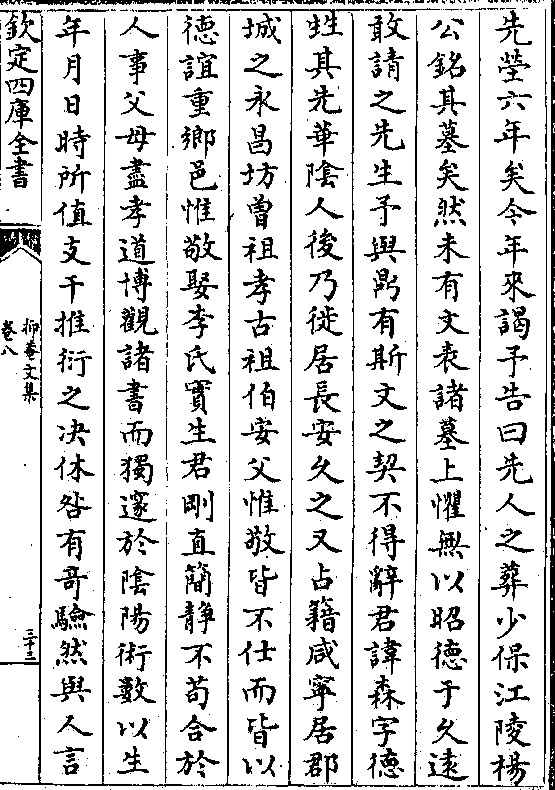 先塋六年矣今年來謁予告曰先人之葬少保江陵楊
公銘其墓矣然未有文表諸墓上懼無以昭德于久遠
敢請之先生予與勗有斯文之契不得辭君諱森字德
甡其先華陰人後乃徙居長安久之又占籍咸寧居郡
城之永昌坊曾祖孝古祖伯安父惟敬皆不仕而皆以
德誼重鄉邑惟敬娶李氏實生君剛直簡靜不苟合於
人事父母盡孝道博觀諸書而獨邃於陰陽術數以生
年月日時所值支干推衍之决休咎有奇驗然與人言
欽定四庫全書
抑菴文集
卷八
三十三